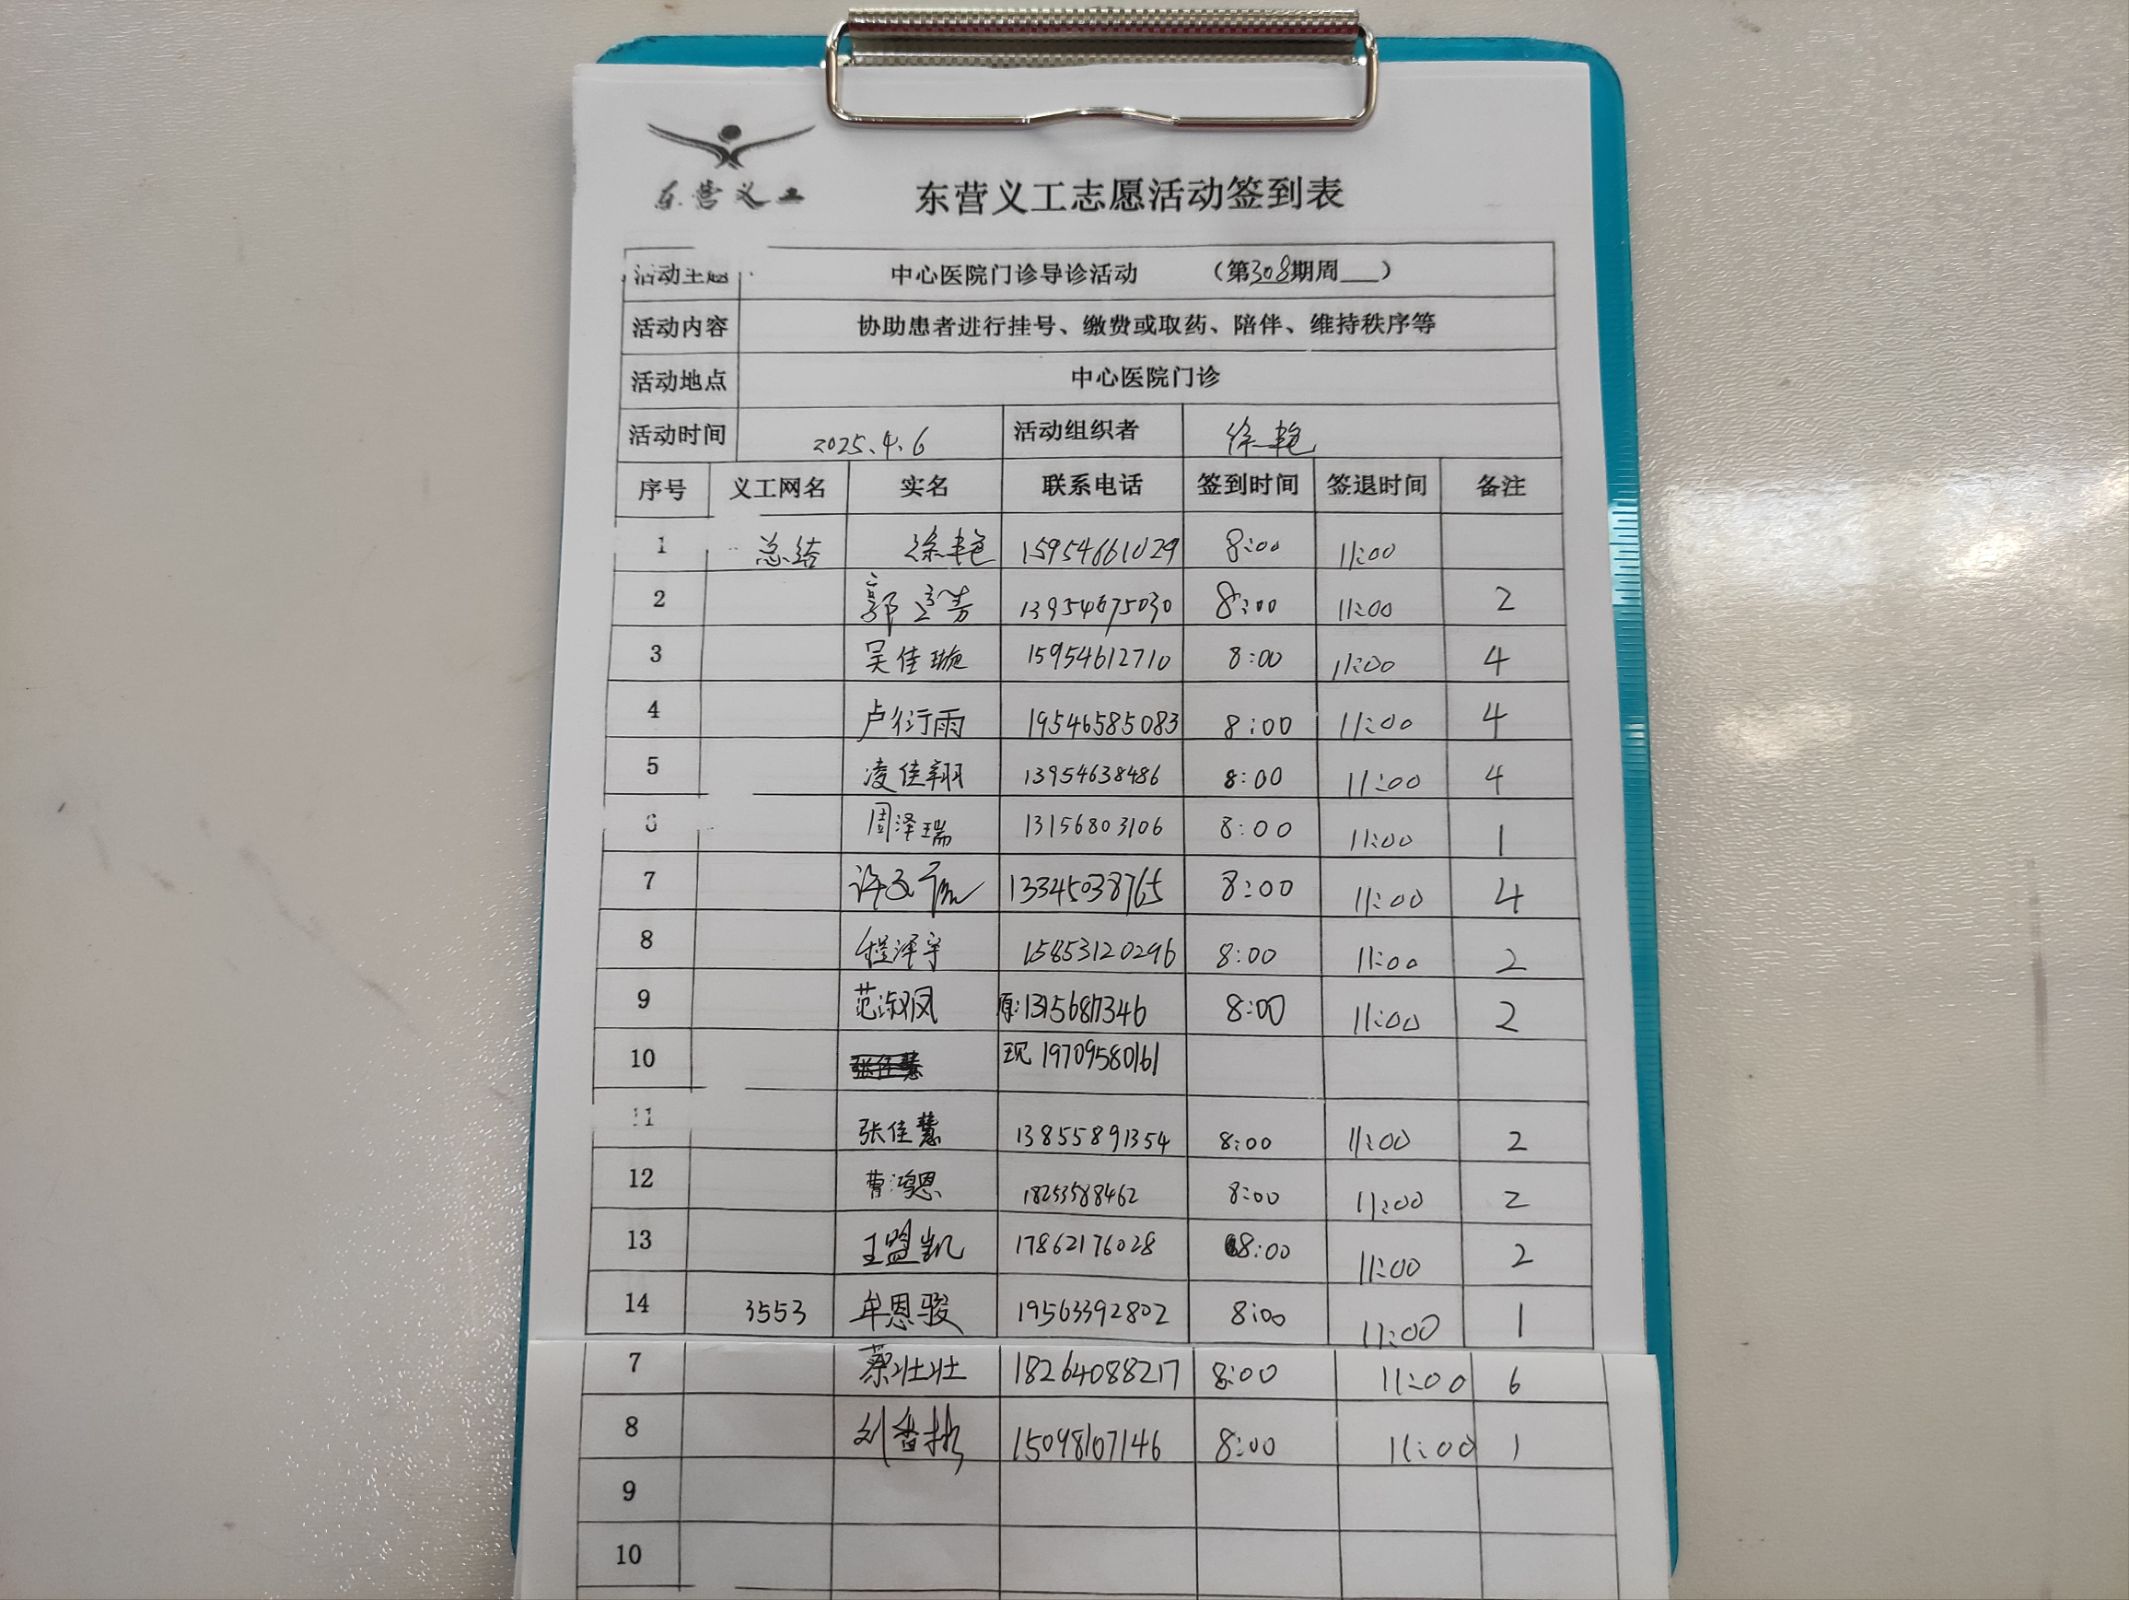 东营义工
东营义工志愿活动签到表
活动主题 中心医院门诊导诊活动 （第308期周___）
活动内容 协助患者进行挂号、缴费或取药、陪伴、维持秩序等
活动地点 中心医院门诊
活动时间 2025.4.6 活动组织者 徐艳
序号 义工网名 实名 联系电话 签到时间 签退时间 备注
1 总结 徐艳 15954661029 8:00 11:00
2 郭立芳 13954675030 8:00 11:00 2
3 吴佳璇 15954612710 8:00 11:00 4
4 卢衍雨 19546585083 8:00 11:00 4
5 凌佳翔 13954638486 8:00 11:00 4
6 周泽瑞 13156803106 8:00 11:00 1
7 13345038765 8:00 11:00 4
8 程泽宇 15853120296 8:00 11:00 2
9 范淑凤 原:1315687346 8:00 11:00 2
10 张佳慧 现 19709580161
11 张佳慧 13855891354 8:00 11:00 2
12 曹鸿恩 18253588462 8:00 11:00 2
13 王盟凯 17862176028 8:00 11:00 2
14 3553 牟恩骏 19563392802 8:00 11:00 1
7 蔡壮壮 18264088217 8:00 11:00 6
8 15098107146 8:00 11:00 1
9
10